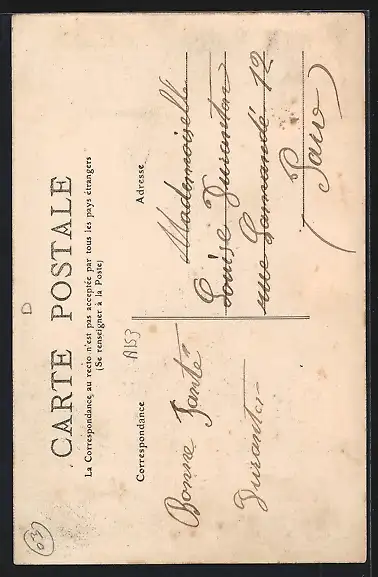 CARTE POSTALE
La Correspondance au recto n'est pas acceptée par tous les pays étrangers
(Se renseigner à la Poste)
D
A153
Correspondance
Bonne Santé
Duranton
Adresse
Mademoiselle
Louise Duranton
rue Lamandé 12
Paris
03